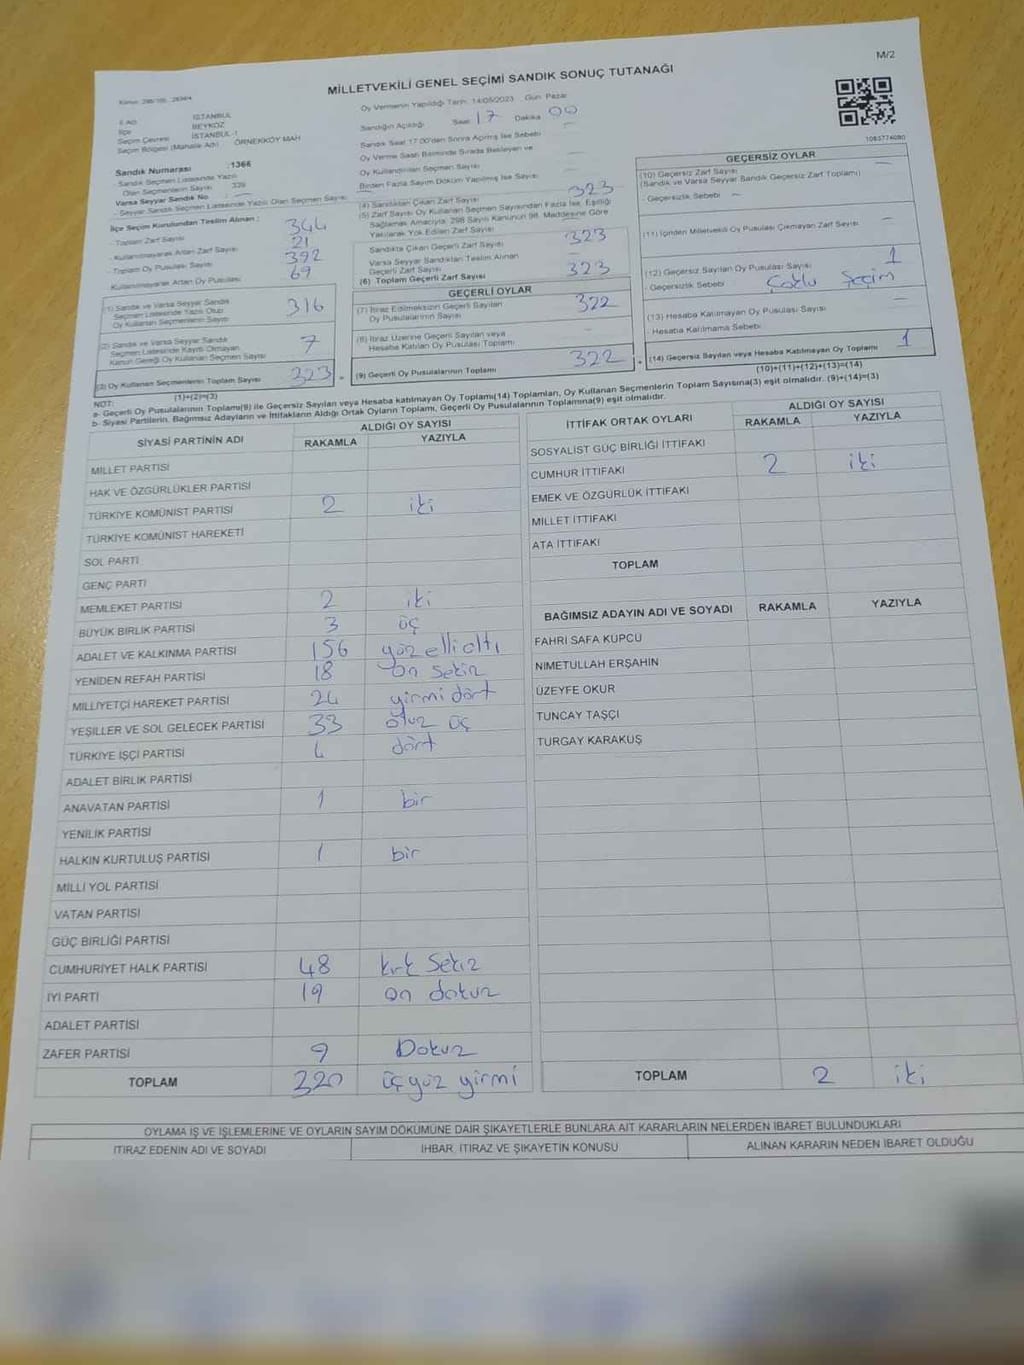 M/2
MİLLETVEKİLİ GENEL SEÇİMİ SANDIK SONUÇ TUTANAĞI
Oy Vermenin Yapıldığı Tarih: 14/05/2023 Gün: Pazar
Sandığın Açıldığı Saat 17 Dakika 00
Sandık Saat 17.00'den Sonra Açılmış İse Sebebi
Oy Verme Saati Bitiminde Sırada Bekleyen ve
Oy Kullandırılan Seçmen Sayısı
Birden Fazla Sayım Döküm Yapılmış İse Sayısı
İl Adı İSTANBUL
İlçe BEYKOZ
Seçim Çevresi İSTANBUL-1
Seçim Bölgesi (Mahalle Adı) ÖRNEKKÖY MAH
Sandık Numarası :1366
Sandık Seçmen Listesinde Yazılı
Olan Seçmenlerin Sayısı 339
Varsa Seyyar Sandık No : —
Seyyar Sandık Seçmen Listesinde Yazılı Olan Seçmen Sayısı
İlçe Seçim Kurulundan Teslim Alınan :
Toplam Zarf Sayısı 344
Kullanılmayarak Artan Zarf Sayısı 21
Toplam Oy Pusulası Sayısı 392
Kullanılmayarak Artan Oy Pusulası 69
(1) Sandık ve Varsa Seyyar Sandık
Seçmen Listesinde Yazılı Olup
Oy Kullanan Seçmenlerin Sayısı 316
(2) Sandık ve Varsa Seyyar Sandık
Seçmen Listesinde Kayıtlı Olmayan
Kanun Gereği Oy Kullanan Seçmen Sayısı 7
(3) Oy Kullanan Seçmenlerin Toplam Sayısı 323
(1)+(2)=(3)
(4) Sandıktan Çıkan Zarf Sayısı 323
(5) Zarf Sayısı Oy Kullanan Seçmen Sayısından Fazla İse, Eşitliği
Sağlamak Amacıyla, 298 Sayılı Kanunun 98. Maddesine Göre
Yakılarak Yok Edilen Zarf Sayısı —
Sandıkta Çıkan Geçerli Zarf Sayısı 323
Varsa Seyyar Sandıktan Teslim Alınan
Geçerli Zarf Sayısı —
(6) Toplam Geçerli Zarf Sayısı 323
GEÇERLİ OYLAR
(7) İtiraz Edilmeksizin Geçerli Sayılan
Oy Pusulalarının Sayısı 322
(8) İtiraz Üzerine Geçerli Sayılan veya
Hesaba Katılan Oy Pusulası Toplamı —
(9) Geçerli Oy Pusulalarının Toplamı 322
1083774080
GEÇERSİZ OYLAR
(10) Geçersiz Zarf Sayısı —
(Sandık ve Varsa Seyyar Sandık Geçersiz Zarf Toplamı)
Geçersizlik Sebebi —
(11) İçinden Milletvekili Oy Pusulası Çıkmayan Zarf Sayısı —
(12) Geçersiz Sayılan Oy Pusulası Sayısı 1
Geçersizlik Sebebi Çoklu Seçim
(13) Hesaba Katılmayan Oy Pusulası Sayısı —
Hesaba Katılmama Sebebi
(14) Geçersiz Sayılan veya Hesaba Katılmayan Oy Toplamı 1
(10)+(11)+(12)+(13)=(14)
NOT:
a- Geçerli Oy Pusulalarının Toplamı(9) ile Geçersiz Sayılan veya Hesaba katılmayan Oy Toplamı(14) Toplamları, Oy Kullanan Seçmenlerin Toplam Sayısına(3) eşit olmalıdır. (9)+(14)=(3)
b- Siyasi Partilerin, Bağımsız Adayların ve İttifakların Aldığı Ortak Oyların Toplamı, Geçerli Oy Pusulalarının Toplamına(9) eşit olmalıdır.
SİYASİ PARTİNİN ADI ALDIĞI OY SAYISI
RAKAMLA YAZIYLA
MİLLET PARTİSİ
HAK VE ÖZGÜRLÜKLER PARTİSİ
TÜRKİYE KOMÜNİST PARTİSİ 2 iki
TÜRKİYE KOMÜNİST HAREKETİ
SOL PARTİ
GENÇ PARTİ
MEMLEKET PARTİSİ 2 iki
BÜYÜK BİRLİK PARTİSİ 3 üç
ADALET VE KALKINMA PARTİSİ 156 yüz elli altı
YENİDEN REFAH PARTİSİ 18 on sekiz
MİLLİYETÇİ HAREKET PARTİSİ 24 yirmi dört
YEŞİLLER VE SOL GELECEK PARTİSİ 33 otuz üç
TÜRKİYE İŞÇİ PARTİSİ 4 dört
ADALET BİRLİK PARTİSİ
ANAVATAN PARTİSİ 1 bir
YENİLİK PARTİSİ
HALKIN KURTULUŞ PARTİSİ 1 bir
MİLLİ YOL PARTİSİ
VATAN PARTİSİ
GÜÇ BİRLİĞİ PARTİSİ
CUMHURİYET HALK PARTİSİ 48 kırk Sekiz
İYİ PARTİ 19 on dokuz
ADALET PARTİSİ
ZAFER PARTİSİ 9 Dokuz
TOPLAM 320 üçyüz yirmi
İTTİFAK ORTAK OYLARI ALDIĞI OY SAYISI
RAKAMLA YAZIYLA
SOSYALİST GÜÇ BİRLİĞİ İTTİFAKI
CUMHUR İTTİFAKI 2 iki
EMEK VE ÖZGÜRLÜK İTTİFAKI
MİLLET İTTİFAKI
ATA İTTİFAKI
TOPLAM
BAĞIMSIZ ADAYIN ADI VE SOYADI RAKAMLA YAZIYLA
FAHRİ SAFA KÜPCÜ
NİMETULLAH ERŞAHİN
ÜZEYFE OKUR
TUNCAY TAŞÇI
TURGAY KARAKUŞ
TOPLAM 2 iki
OYLAMA İŞ VE İŞLEMLERİNE VE OYLARIN SAYIM DÖKÜMÜNE DAİR ŞİKAYETLERLE BUNLARA AİT KARARLARIN NELERDEN İBARET BULUNDUKLARI
İTİRAZ EDENİN ADI VE SOYADI İHBAR, İTİRAZ VE ŞİKAYETİN KONUSU ALINAN KARARIN NEDEN İBARET OLDUĞU